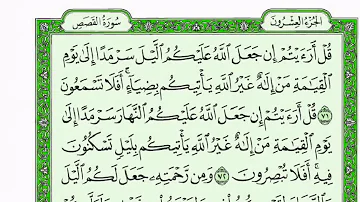 الجزء العشرون سورة القصص
قُلْ أَرَءَيْتُمْ إِن جَعَلَ ٱللَّهُ عَلَيْكُمُ ٱلَّيْلَ سَرْمَدًا إِلَىٰ يَوْمِ
ٱلْقِيَٰمَةِ مَنْ إِلَٰهٌ غَيْرُ ٱللَّهِ يَأْتِيكُم بِضِيَآءٍ ۖ أَفَلَا تَسْمَعُونَ
٧١ قُلْ أَرَءَيْتُمْ إِن جَعَلَ ٱللَّهُ عَلَيْكُمُ ٱلنَّهَارَ سَرْمَدًا إِلَىٰ
يَوْمِ ٱلْقِيَٰمَةِ مَنْ إِلَٰهٌ غَيْرُ ٱللَّهِ يَأْتِيكُم بِلَيْلٍ تَسْكُنُونَ
فِيهِ ۖ أَفَلَا تُبْصِرُونَ ٧٢ وَمِن رَّحْمَتِهِۦ جَعَلَ لَكُمُ ٱلَّيْلَ